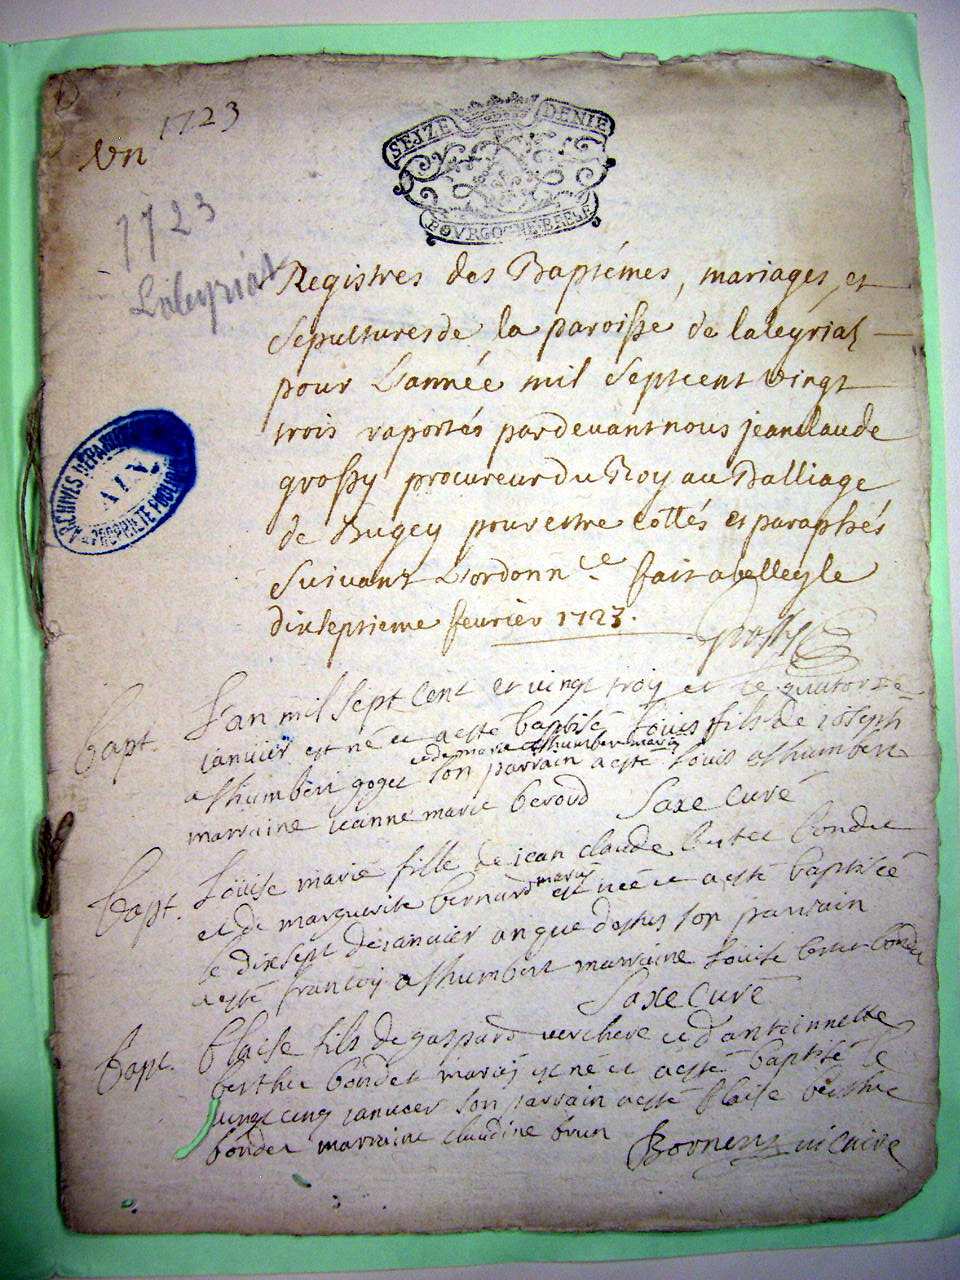 1723
Un
SEIZE DENIE
BOVRGOGNE BRESSE
1723
Laleyriat
ARCHIVES DÉPARTEM
AIN
PROPRIÉTÉ PUBLIQUE
Registres des Baptémes, mariages, et
sepultures de la paroisse de laleyriaz
pour L'année mil septcent vingt
trois raportés pardevant nous jean claude
grossy procureur du Roy au Balliage
de Bugey pour estre cottés et paraphés
suivant L'ordonn.ce fait a belley le
dixseptieme fevrier 1723.
Bapt. L'an mil sept cent et vingt troy et le quatorze
janvier est né et a esté baptisé Louis fils de joseph
et de marie asthumbert mariés
asthumbert goget son parrain a esté Louis asthumbert
marraine jeanne marie beroud Saxe Curé
Bapt. Louise marie fille de jean claude bondet
et de marguerite bernard mariés est née et a esté baptisée
le dixsept de janvier an que dessus son parrain
a esté françoy asthumbert marraine Louise bondet
Saxe Curé
Bapt. Blaise fils de gaspard verchere et d'antoinette
berthet bondet mariés est né et a esté baptisé le
vingt cinq janvier son parrain a esté blaise berthet
bondet marraine claudine brun
Bornenz vicaire